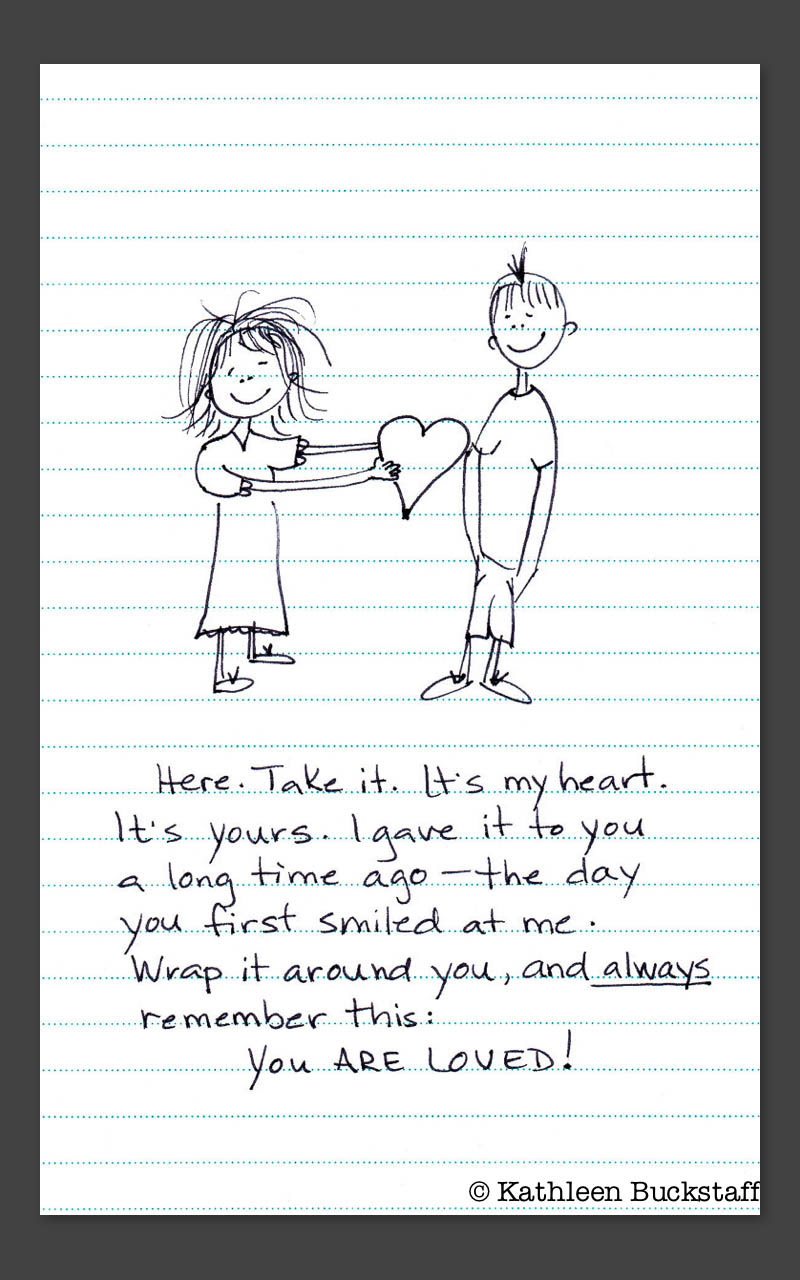 Here. Take it. It's my heart.
It's yours. I gave it to you
a long time ago — the day
you first smiled at me.
Wrap it around you, and always
remember this:
You ARE LOVED!
© Kathleen Buckstaff